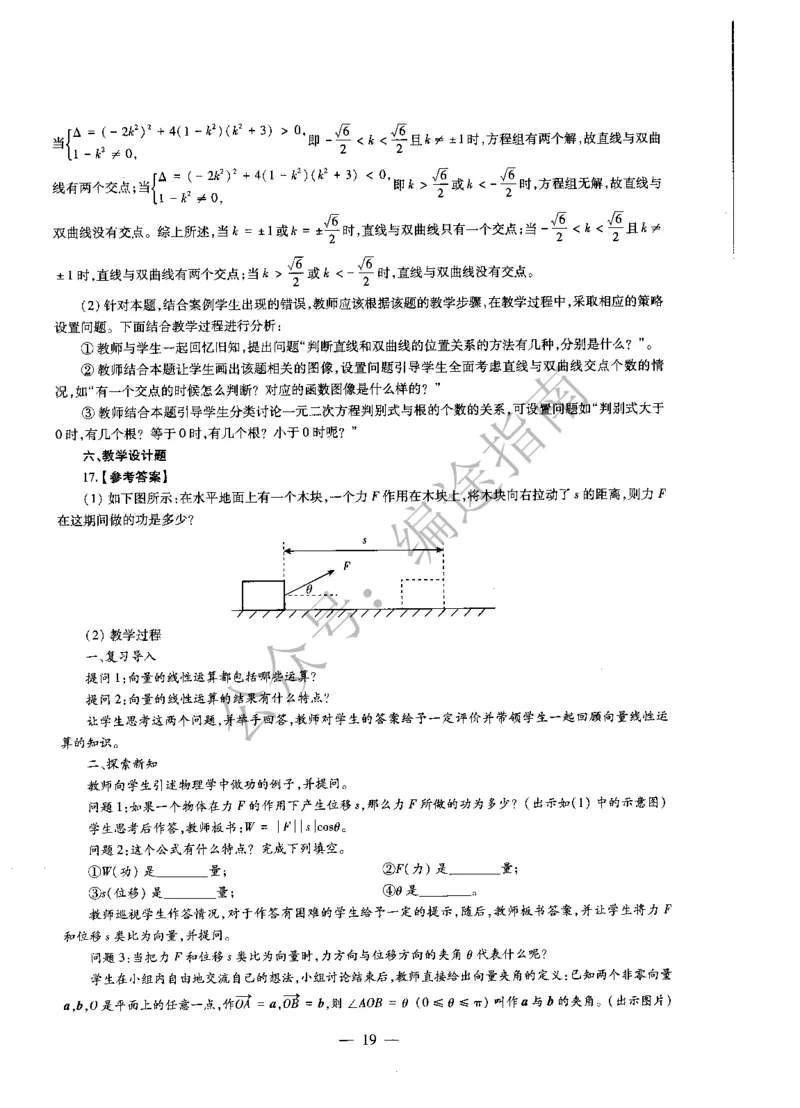 当{Δ = (－2k²)² + 4(1－k²)(k² + 3) > 0, 1－k² ≠ 0, 即 －√6/2 < k < √6/2 且 k ≠ ±1时,方程组有两个解,故直线与双曲
线有两个交点;当{Δ = (－2k²)² + 4(1－k²)(k² + 3) < 0, 1－k² ≠ 0, 即 k > √6/2 或 k < －√6/2 时,方程组无解,故直线与
双曲线没有交点。综上所述,当 k = ±1 或 k = ±√6/2 时,直线与双曲线只有一个交点;当 －√6/2 < k < √6/2 且 k ≠
±1时,直线与双曲线有两个交点;当 k > √6/2 或 k < －√6/2 时,直线与双曲线没有交点。
(2) 针对本题,结合案例学生出现的错误,教师应该根据该题的教学步骤,在教学过程中,采取相应的策略
设置问题。下面结合教学过程进行分析:
①教师与学生一起回忆旧知,提出问题“判断直线和双曲线的位置关系的方法有几种,分别是什么?”。
②教师结合本题让学生画出该题相关的图像,设置问题引导学生全面考虑直线与双曲线交点个数的情
况,如“有一个交点的时候怎么判断? 对应的函数图像是什么样的? ”
③教师结合本题引导学生分类讨论一元二次方程判别式与根的个数的关系,可设置问题如“判别式大于
0时,有几个根? 等于0时,有几个根? 小于0时呢? ”
六、教学设计题
17.【参考答案】
(1) 如下图所示:在水平地面上有一个木块,一个力 F 作用在木块上,将木块向右拉动了 s 的距离,则力 F
在这期间做的功是多少?
s
F
θ
(2) 教学过程
一、复习导入
提问1:向量的线性运算都包括哪些运算?
提问2:向量的线性运算的结果有什么特点?
让学生思考这两个问题,并举手回答,教师对学生的答案给予一定评价并带领学生一起回顾向量线性运
算的知识。
二、探索新知
教师向学生引述物理学中做功的例子,并提问。
问题1:如果一个物体在力 F 的作用下产生位移 s,那么力 F 所做的功为多少? (出示如(1) 中的示意图)
学生思考后作答,教师板书:W = |F||s|cosθ。
问题2:这个公式有什么特点? 完成下列填空。
①W(功) 是______量; ②F(力) 是______量;
③s(位移) 是______量; ④θ 是______。
教师巡视学生作答情况,对于作答有困难的学生给予一定的提示,随后,教师板书答案,并让学生将力 F
和位移 s 类比为向量,并提问。
问题3:当把力 F 和位移 s 类比为向量时,力方向与位移方向的夹角 θ 代表什么呢?
学生在小组内自由地交流自己的想法,小组讨论结束后,教师直接给出向量夹角的定义:已知两个非零向量
a,b,O 是平面上的任意一点,作OA→ = a,OB→ = b,则 ∠AOB = θ (0 ≤ θ ≤ π) 叫作 a 与 b 的夹角。(出示图片)
— 19 —
公众号:编途指南